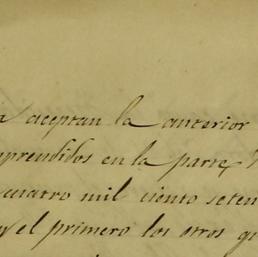 aceptan la anterior
prendidos en la parte
cuatro mil ciento seten
el primero los otros qu